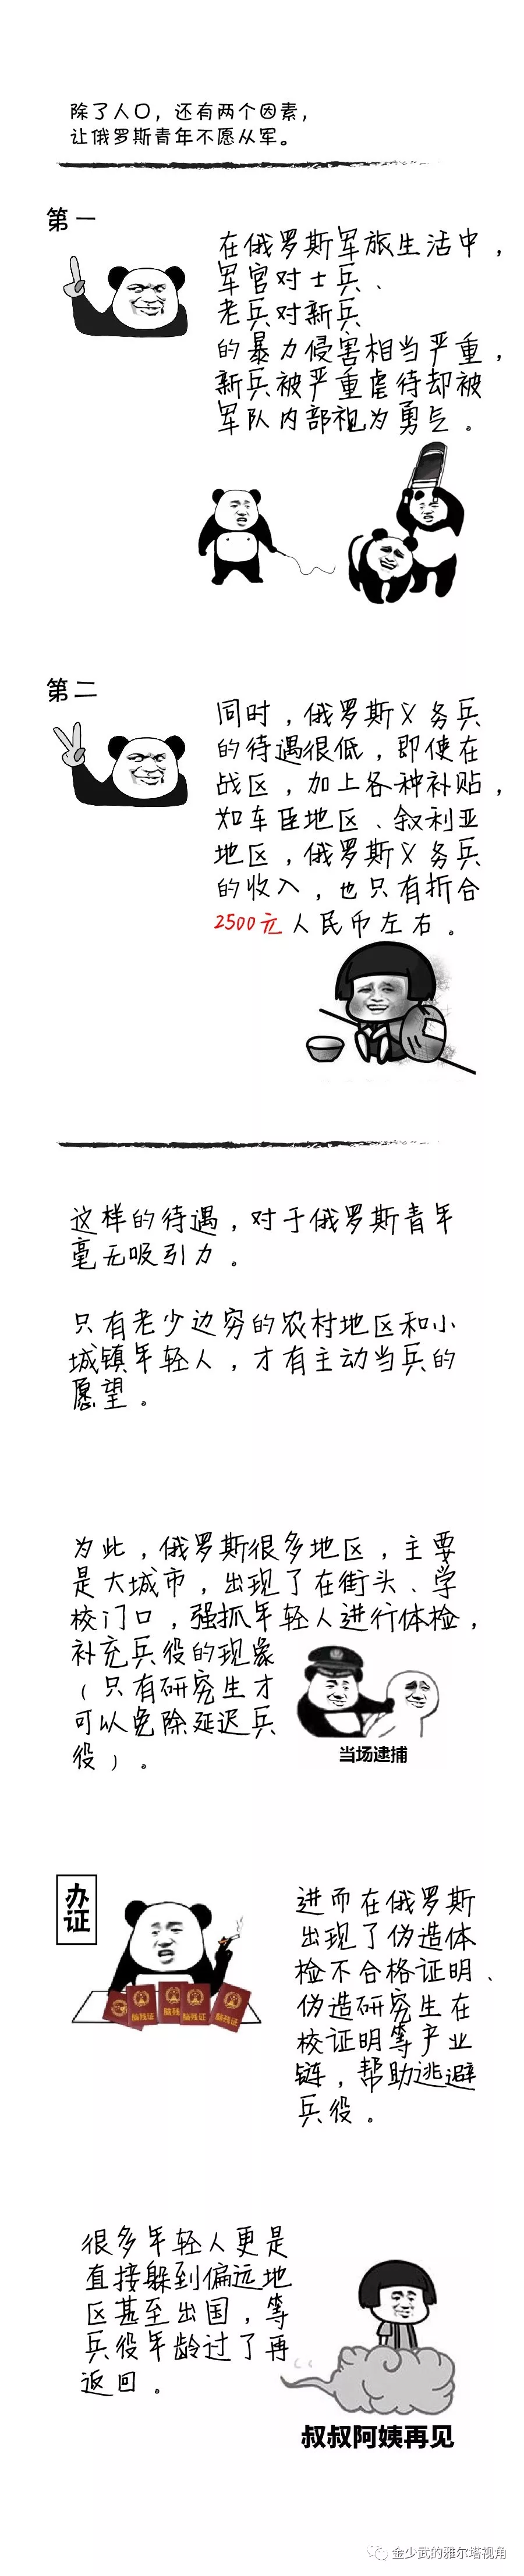 除了人口，还有两个因素，
让俄罗斯青年不愿从军。
第一
在俄罗斯军旅生活中，
军官对士兵、
老兵对新兵
的暴力侵害相当严重，
新兵被严重虐待却被
军队内部视为勇气。
第二
同时，俄罗斯义务兵
的待遇很低，即使在
战区，加上各种补贴，
如车臣地区、叙利亚
地区，俄罗斯义务兵
的收入，也只有折合
2500元人民币左右。
这样的待遇，对于俄罗斯青年
毫无吸引力。
只有老少边穷的农村地区和小
城镇年轻人，才有主动当兵的
愿望。
为此，俄罗斯很多地区，主要
是大城市，出现了在街头、学
校门口，强抓年轻人进行体检，
补充兵役的现象
（只有研究生才
可以免除延迟兵
役）。
当场逮捕
办证
脑残
脑残证
脑残证
脑残证
进而在俄罗斯
出现了伪造体
检不合格证明、
伪造研究生在
校证明等产业
链，帮助逃避
兵役。
很多年轻人更是
直接躲到偏远地
区甚至出国，等
兵役年龄过了再
返回。
叔叔阿姨再见
金少武的雅尔塔视角